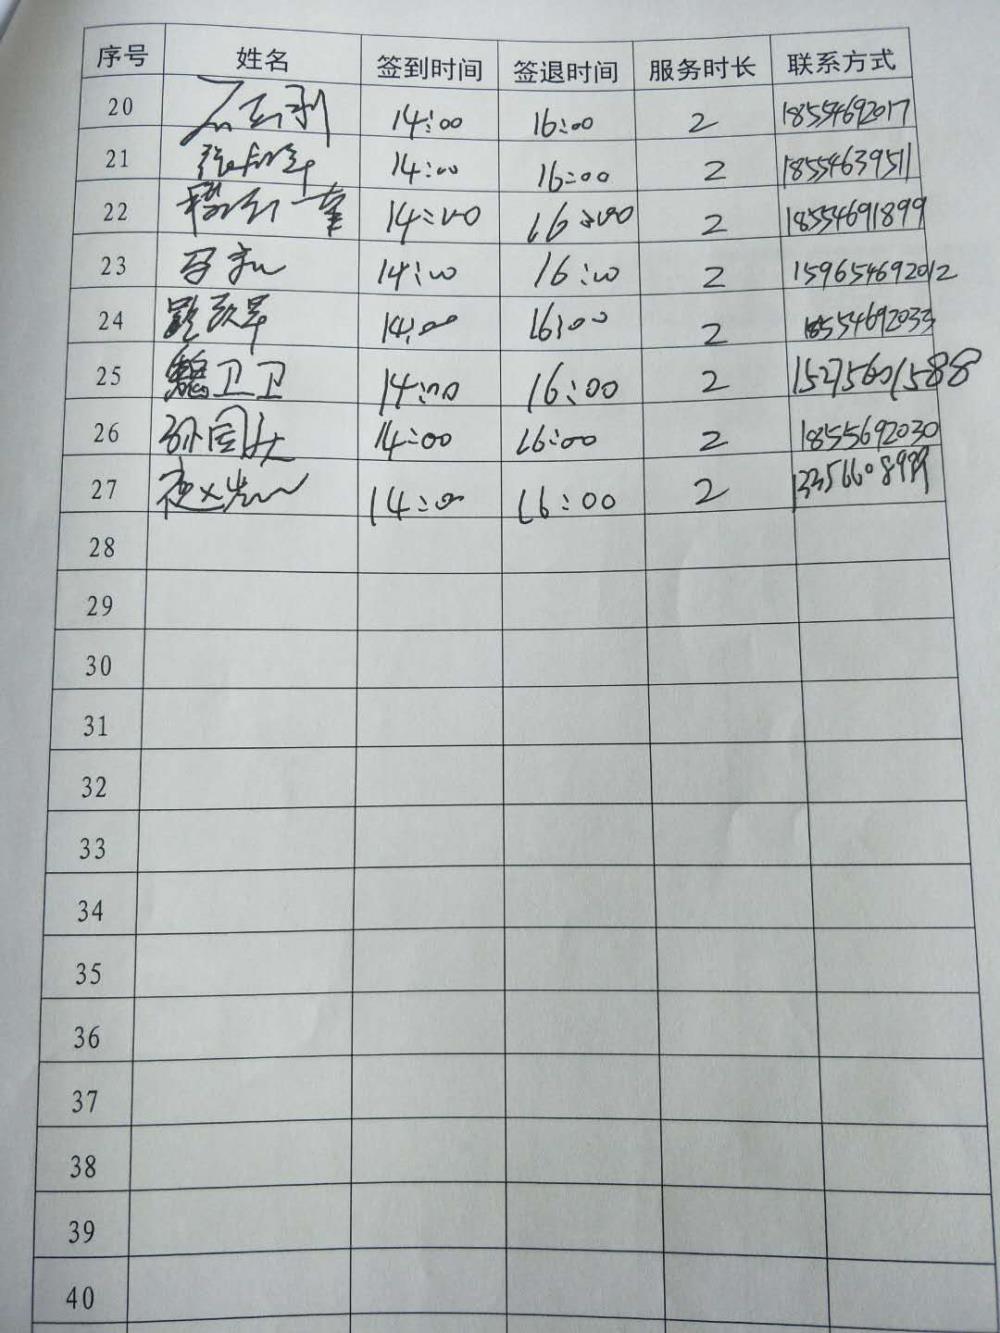 序号 姓名 签到时间 签退时间 服务时长 联系方式
20 14:00 16:00 2 18554692017
21 14:00 16:00 2 18554639511
22 14:00 16:00 2 18554691899
23 14:00 16:00 2 159654692012
24 14:00 16:00 2 18554692033
25 魏卫卫 14:00 16:00 2 15275601588
26 14:00 16:00 2 1855692030
27 14:00 16:00 2
28
29
30
31
32
33
34
35
36
37
38
39
40